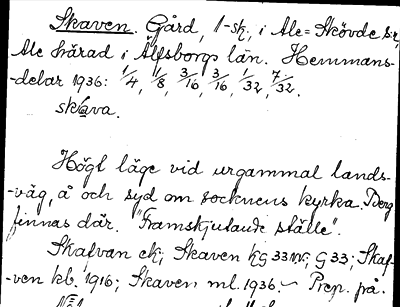 Skaven. Gård, 1-sk, i Ale-Skövde s:n,
Ale härad i Älfsborgs län. Hemmans-
-delar 1936: 1/4, 1/8, 3/16, 3/16, 1/32, 7/32.
skava.
Högt läge vid urgammal lands-
-väg, å och syd om socknens kyrka. Berg
finnas där. "Framskjutande ställe".
Skafvan ek; Skaven kg 33 G 33; Skaf-
-ven kb. 1916; Skaven ml. 1936. – Prep. på.